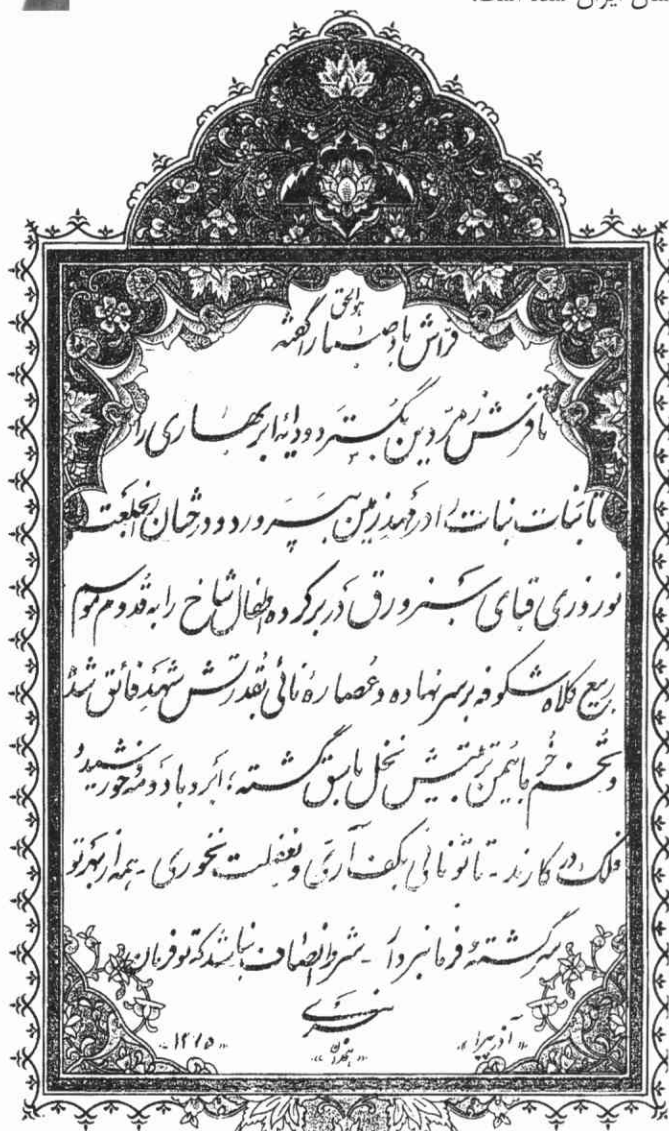 ستان ایران شده است.
هوالحق
فراش باد صبا را گفته
تا فرش زمردین بگسترد و دایهٔ ابر بهاری را
تا بنات نبات را در مهد زمین بپرورد و درختان را بخلعت
نوروزی قبای سبز ورق در بر کرده اطفال شاخ را به قدوم موسم
ربیع کلاه شکوفه بر سر نهاده و عصارهٔ نائی بقدرتش شهد فائق شده
و تخم خرما به یمن تربیتش نخل باسق گشته، ابر و باد و مه و خورشید و
فلک در کارند - تا تو نانی بکف آری و بغفلت نخوری - همه از بهر تو
سرگشته و فرمانبردار - شرط انصاف نباشد که تو فرمان
نبری
آذر
تهران
۱۳۱۵